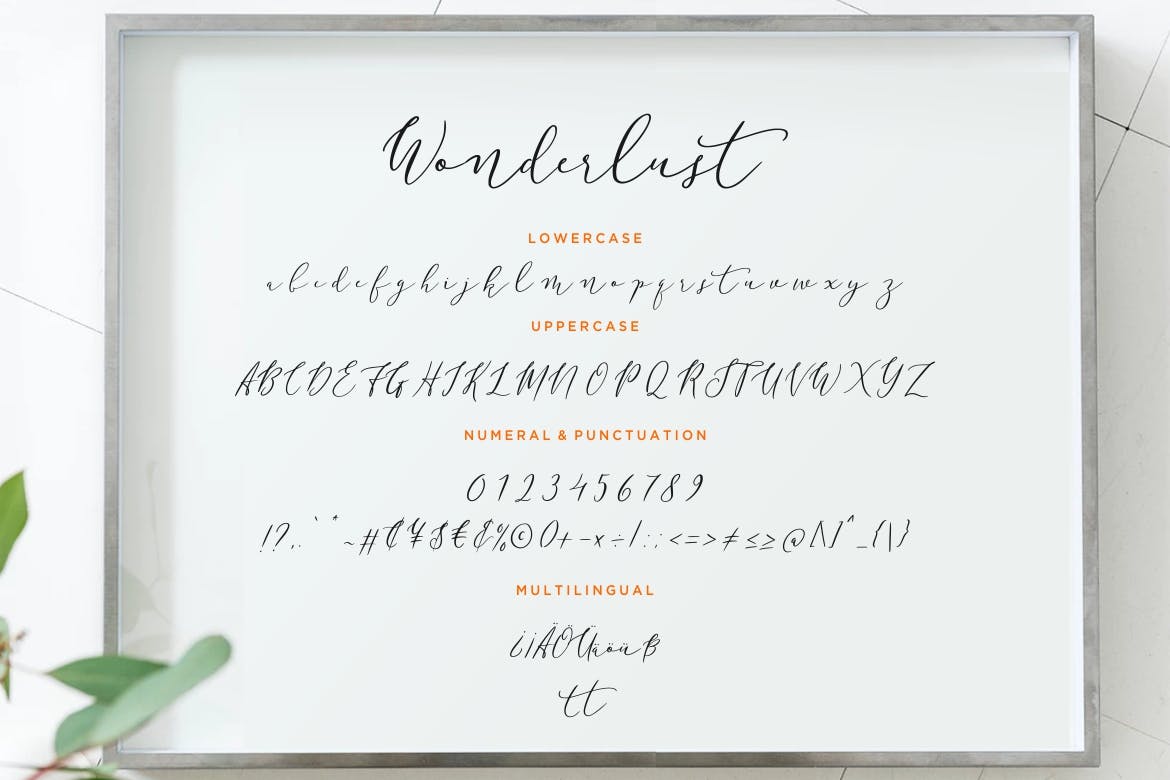 Wonderlust
LOWERCASE
a b c d e f g h i j k l m n o p q r s t u v w x y z
UPPERCASE
A B C D E F G H I J K L M N O P Q R S T U V W X Y Z
NUMERAL & PUNCTUATION
0 1 2 3 4 5 6 7 8 9
!?,.`*~#₵¥$€&%©()+-×÷/:;<=>≠≤≥@[\]^_{|}
MULTILINGUAL
¿¡ÄÖÜäöüß
tt